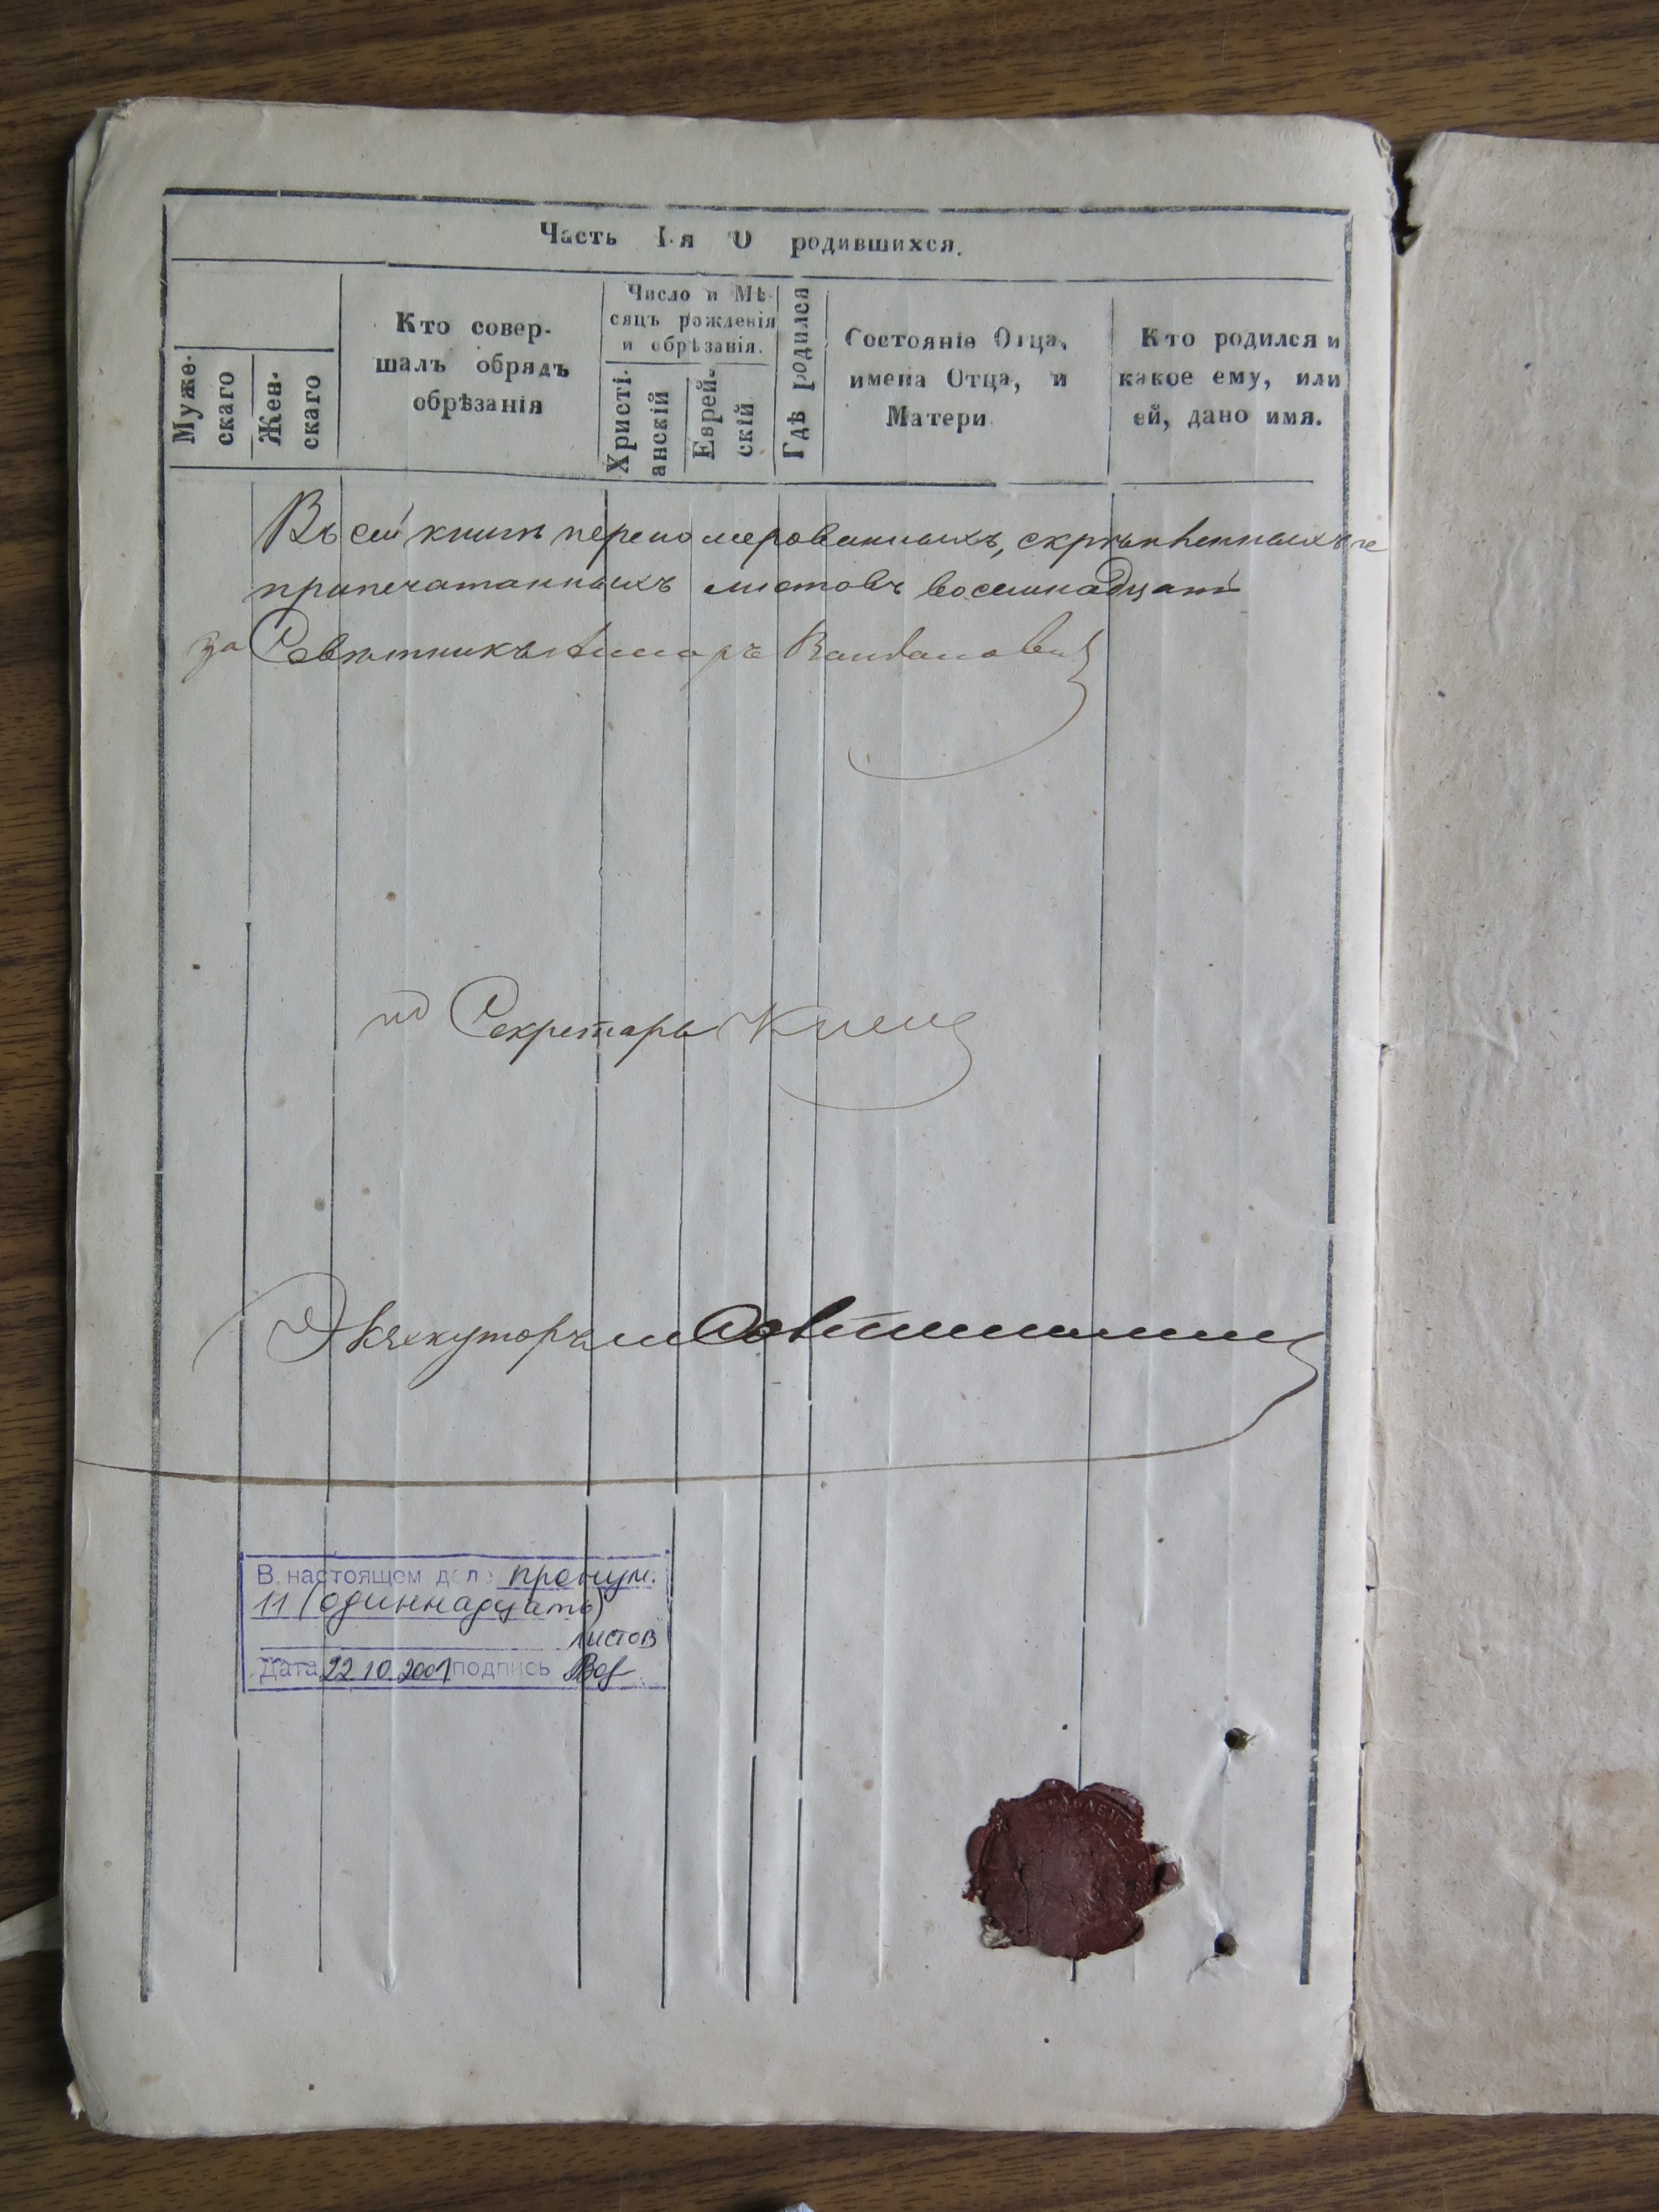 Часть I-я О родившихся.
Муже-
скаго
Жен-
скаго
Кто совер-
шалъ обрядъ
обрѣзанія
Число и Мѣ-
сяцъ рожденія
и обрѣзанія.
Христі-
анскій
Еврей-
скій
Гдѣ родился
Состояніе Отца,
имена Отца, и
Матери
Кто родился и
какое ему, или
ей, дано имя.
Въ сей книгѣ перенумерованныхъ, скрѣпленныхъ и
припечатанныхъ листовъ восемнадцать
За Совѣтника
Секретарь
Экзекуторъ
В настоящем деле пронум.
11 (одиннадцать)
листов
Дата 22.10.2001 подпись